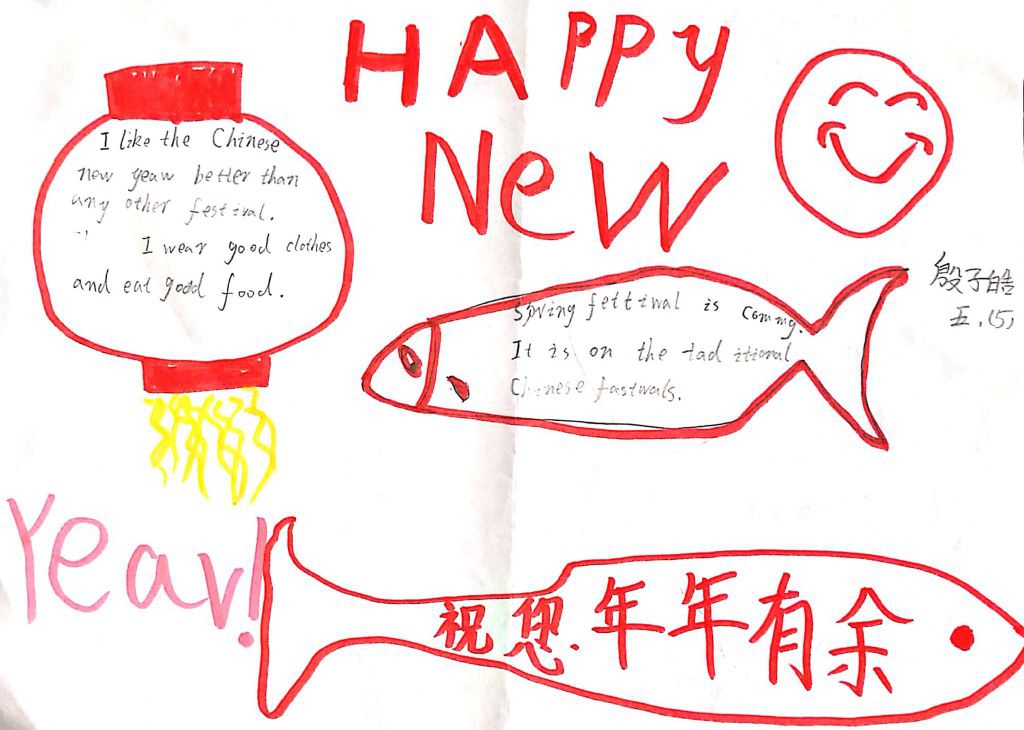 HAPPY
New
I like the Chinese
new yeaw better than
any other festival.
I wear good clothes
and eat good food.
殷子皓
五.(5)
Spring fettiwal is Coming.
It is on the tad itional
Chinese fastwals.
Year!
祝您.年年有余